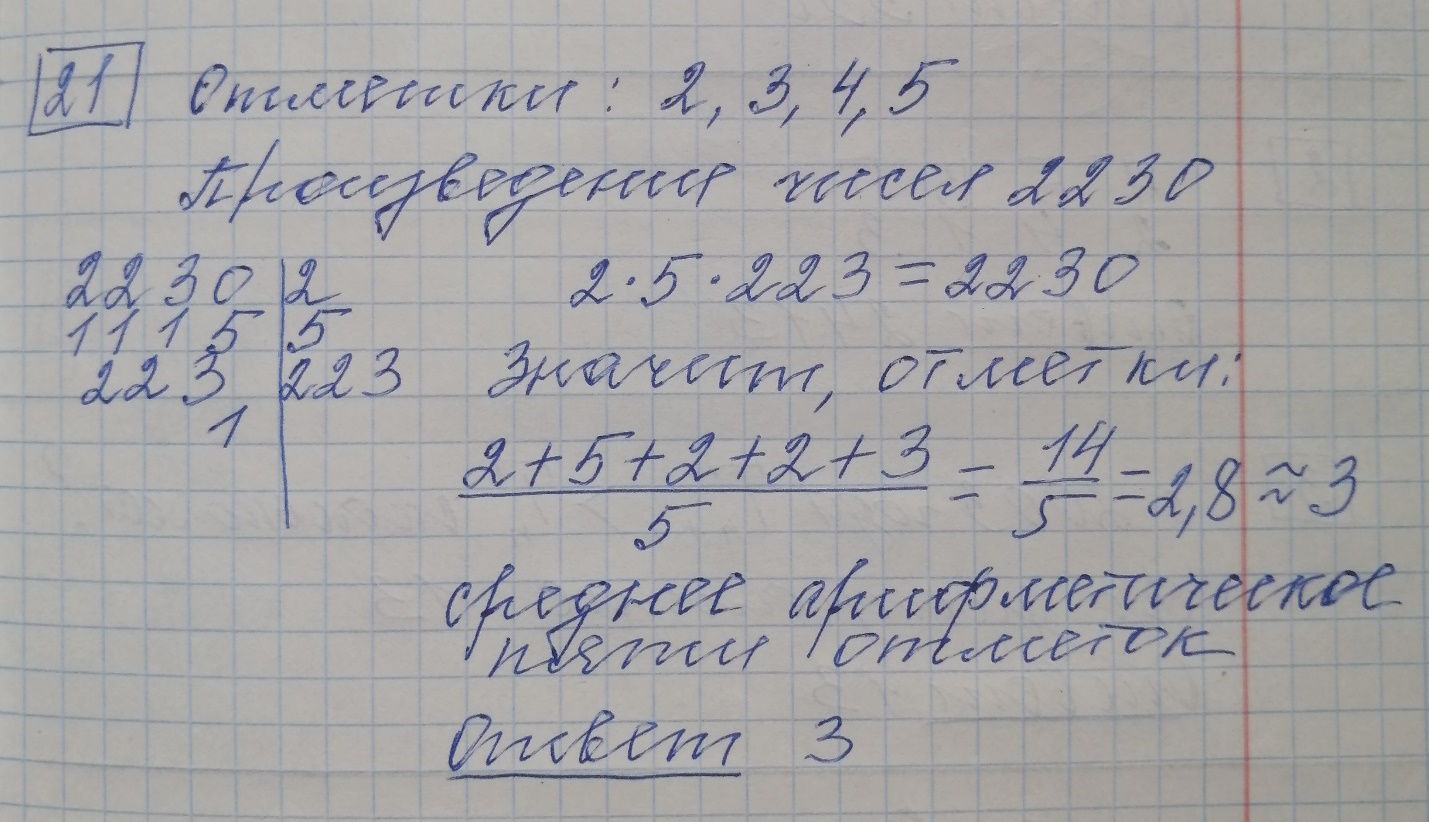 21 Отметки: 2, 3, 4, 5
Произведения чисел 2230
2230 | 2
1115 | 5
223 | 223
1
2·5·223=2230
Значит, отметки:
(2+5+2+2+3)/5 = 14/5 = 2,8 ≈ 3
среднее арифметическое
пяти отметок
Ответ 3